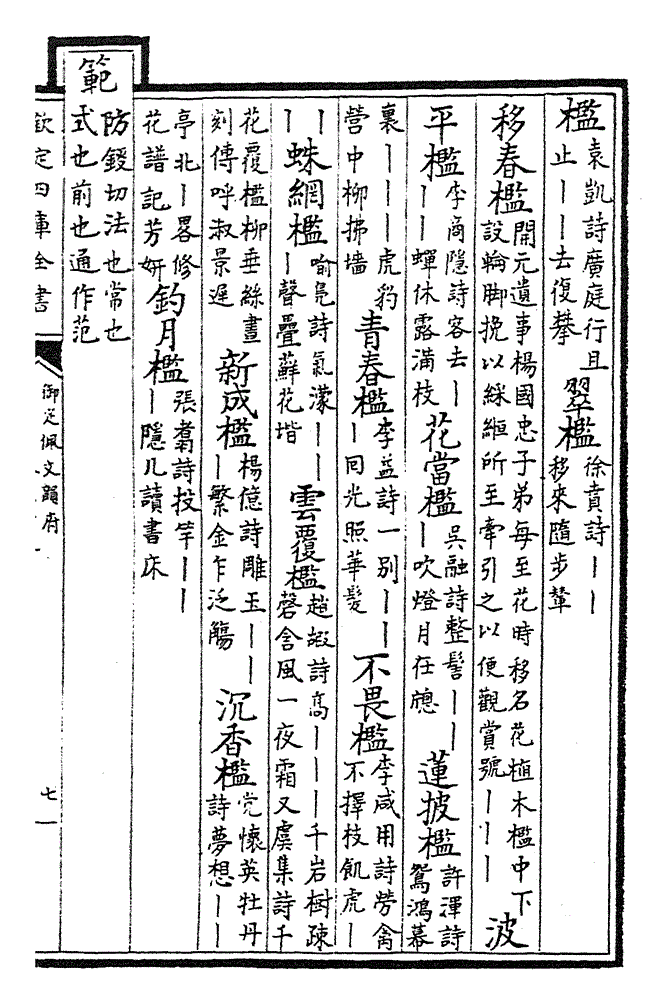 檻袁凱詩廣庭行且止丨丨去復攀翠檻徐賁詩丨丨移來隨步輦
移春檻開元遺事楊國忠子弟每至花時移名花植木檻中下設輪脚挽以綵絙所至牽引之以便觀賞號丨丨丨波
平檻李商隱詩客去丨丨丨蟬休露滿枝花當檻吳融詩整髻丨丨丨吹燈月在牕蓮披檻許渾詩鴛鴻幕
裏丨丨丨虎豹營中柳拂墻青春檻李益詩一別丨丨丨同光照華髮不畏檻李咸用詩勞禽不擇枝飢虎丨
丨丨蛛網檻喻鳧詩氣濛丨丨丨聲疊蘚花堦雲覆檻趙嘏詩高丨丨丨千岩樹疎磬含風一夜霜又虞集詩千
花覆檻柳垂絲晝刻傳呼淑景遲新成檻楊億詩雕玉丨丨丨繁金乍泛觴沉香檻党懷英牡丹詩夢想丨丨
亭北丨畧修花譜記芳妍釣月檻張翥詩投竿丨丨丨隱几讀書床
範防鋄切法也常也式也前也通作范
欽定四庫全書
御定佩文韻府
七一